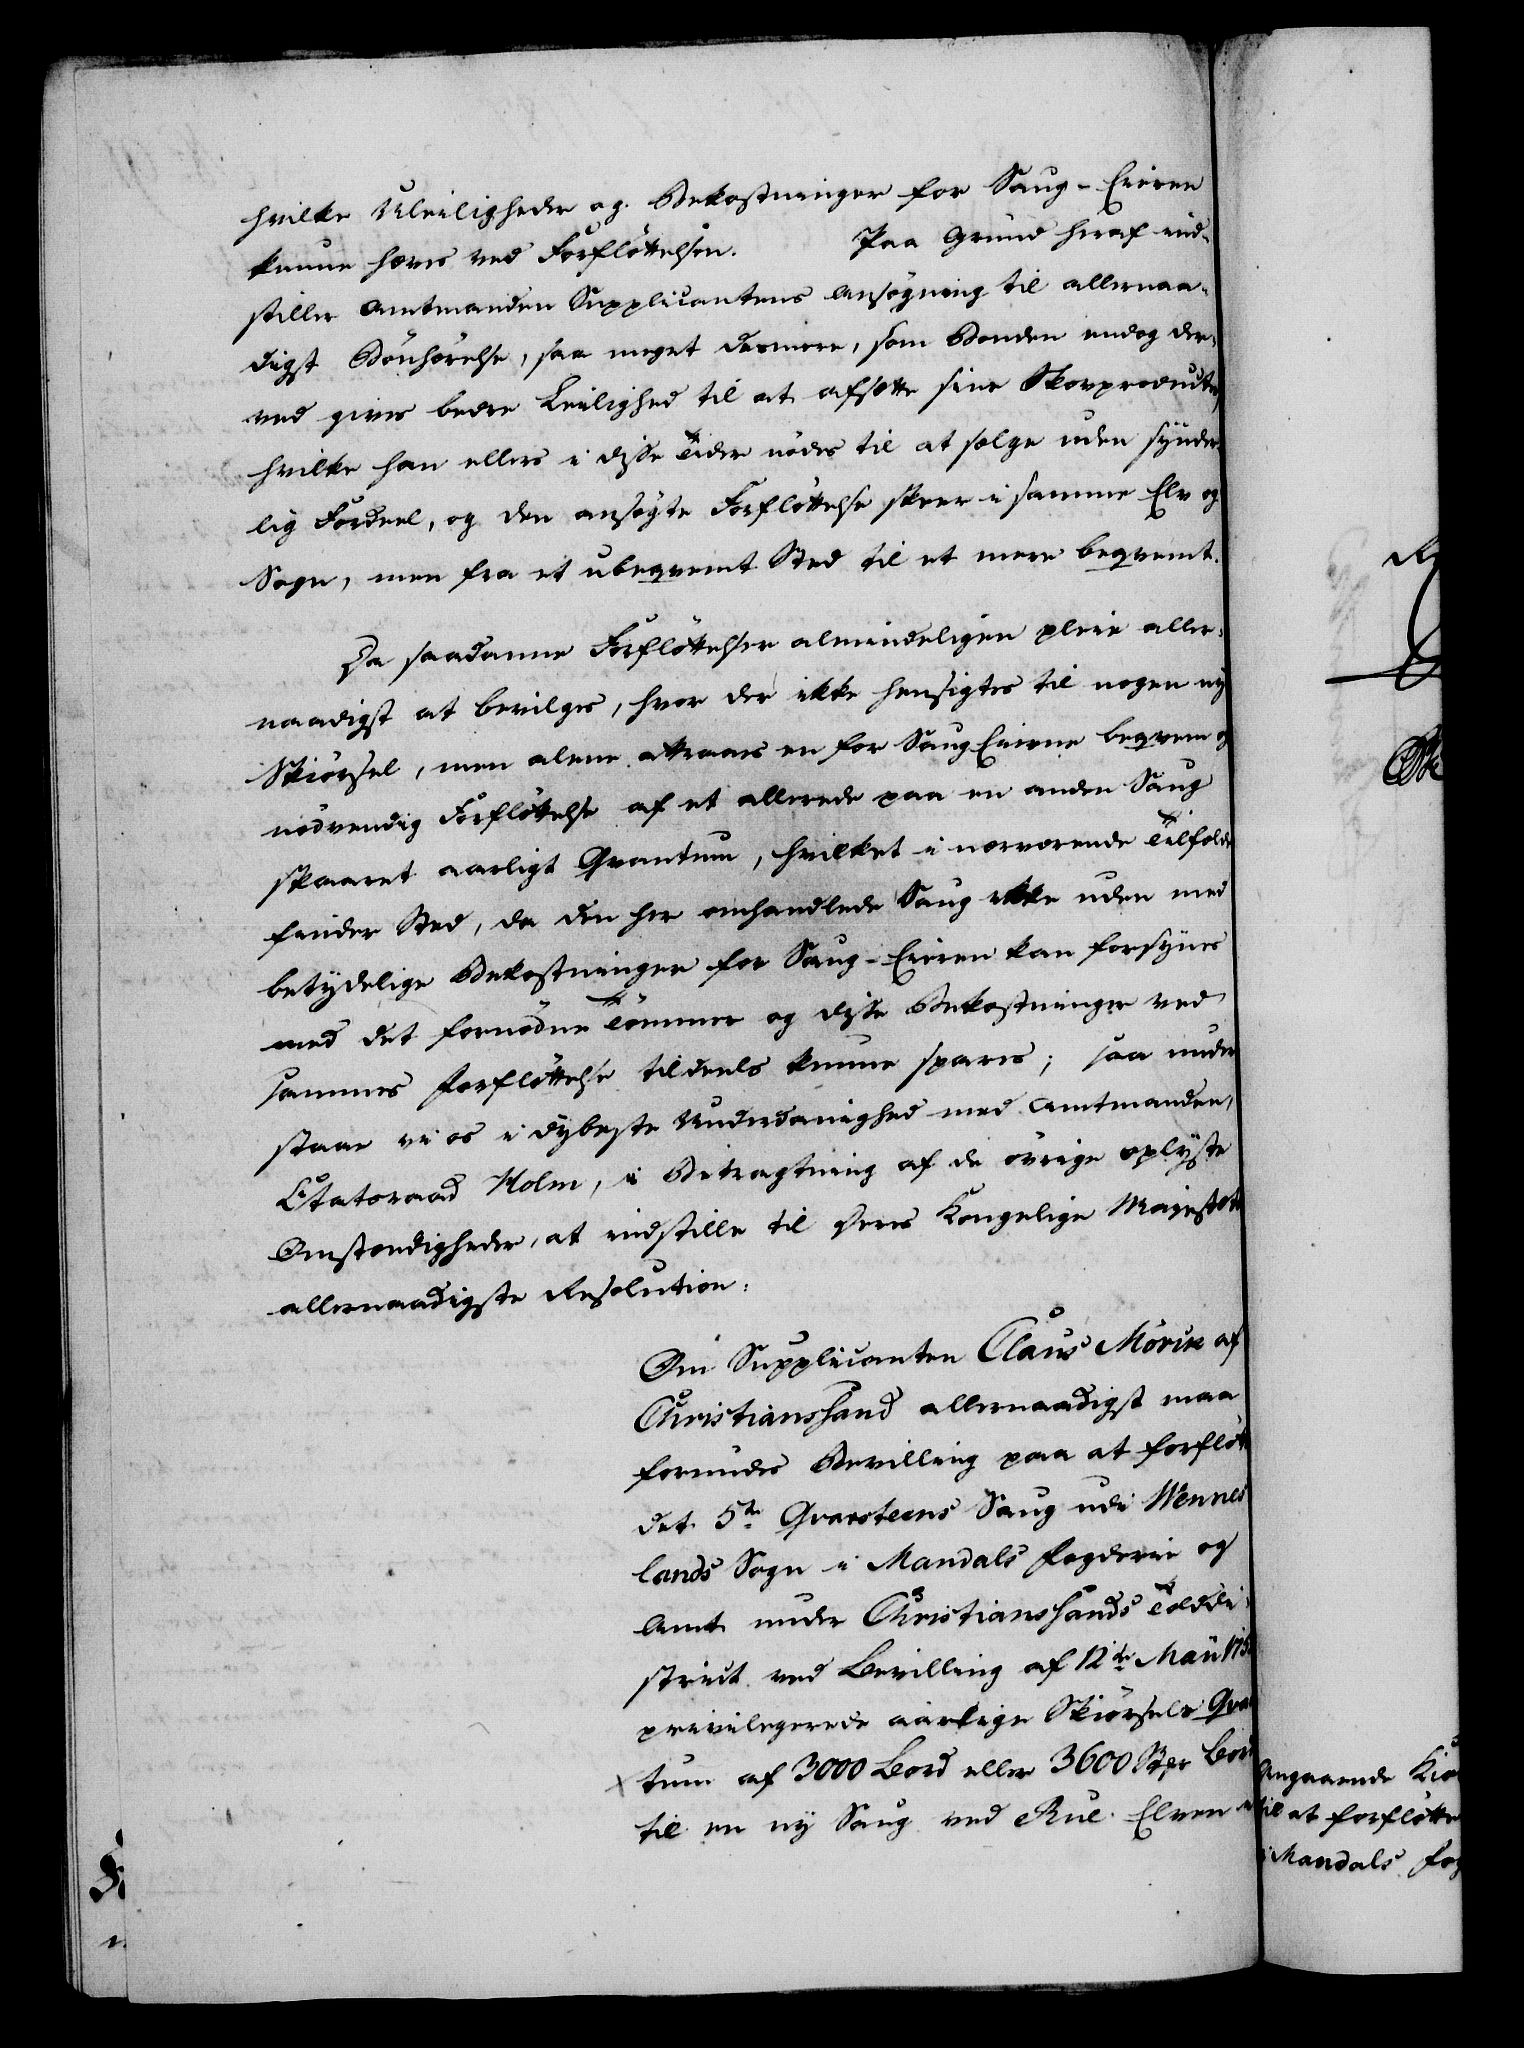 hvilke Uleiligheder og Bekostninger for Saug-Eieren
kunne hæves ved Forfløttelsen. Paa Grund heraf ind-
stiller Amtmanden Supplicantens Ansøgning til allernaa-
digst Bönhörelse, saa meget desmere, som Bonden endog der-
ved gives bedre Leilighed til at afsætte sine Skovproducter,
hvilke han ellers i disse Tider nödes til at sælge uden synder-
lig Fordeel, og den ansögte Forflöttelse skeer i samme Elv og
Sogn, men fra et ubeqvemt Sted til et mere beqvemt.
Da saadanne Forflöttelser almindeligen pleie aller-
naadigst at bevilges, hvor der ikke hensigtes til nogen ny
Skiørsel, men alene attraaes en for SaugEierne beqvem og
nödvendig Forflöttelse af et allerede paa en anden Saug
skaaret aarligt Qvantum, hvilket i nærværende Tilfælde
finder Sted, da den her omhandlede Saug ikke uden med
betydelige Bekostninger for Saug-Eieren kan forsynes
med det fornødne Tömmer og disse Bekostninger ved
sammes Forflöttelse tildeels kunne spares; saa under-
staae vi os i dybeste Underdanighed med Amtmanden,
Etatsraad Holm, i Betragtning af de övrige oplyste
Omstændigheder, at indstille til Deres Kongelige Majestæts
allernaadigste Resolution:
Om Supplicanten Claus Mörck af
Christianssand allernaadigst maa
forundes Bevilling paa at forflött
det 5te Qvarsteens Saug udi Wennes
lands Sogn i Mandals Fogderie og
Amt under Christianssands Tolddi-
strict ved Bevilling af 12te Maii 175
privilegerede aarlige Skiørsels Qvan
tum af 3000 Bord eller 3600 Stkr Bord
til en ny Saug ved Elven
Angaaende
til at forflötte
i Mandals Fog